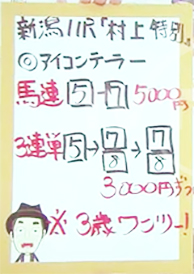 新潟11R「村上特別」
◎アイコンテーラー
馬連 5-7 5000円
3連単 5→7 8→7 8
3000円ずつ
※3歳ワンツー!